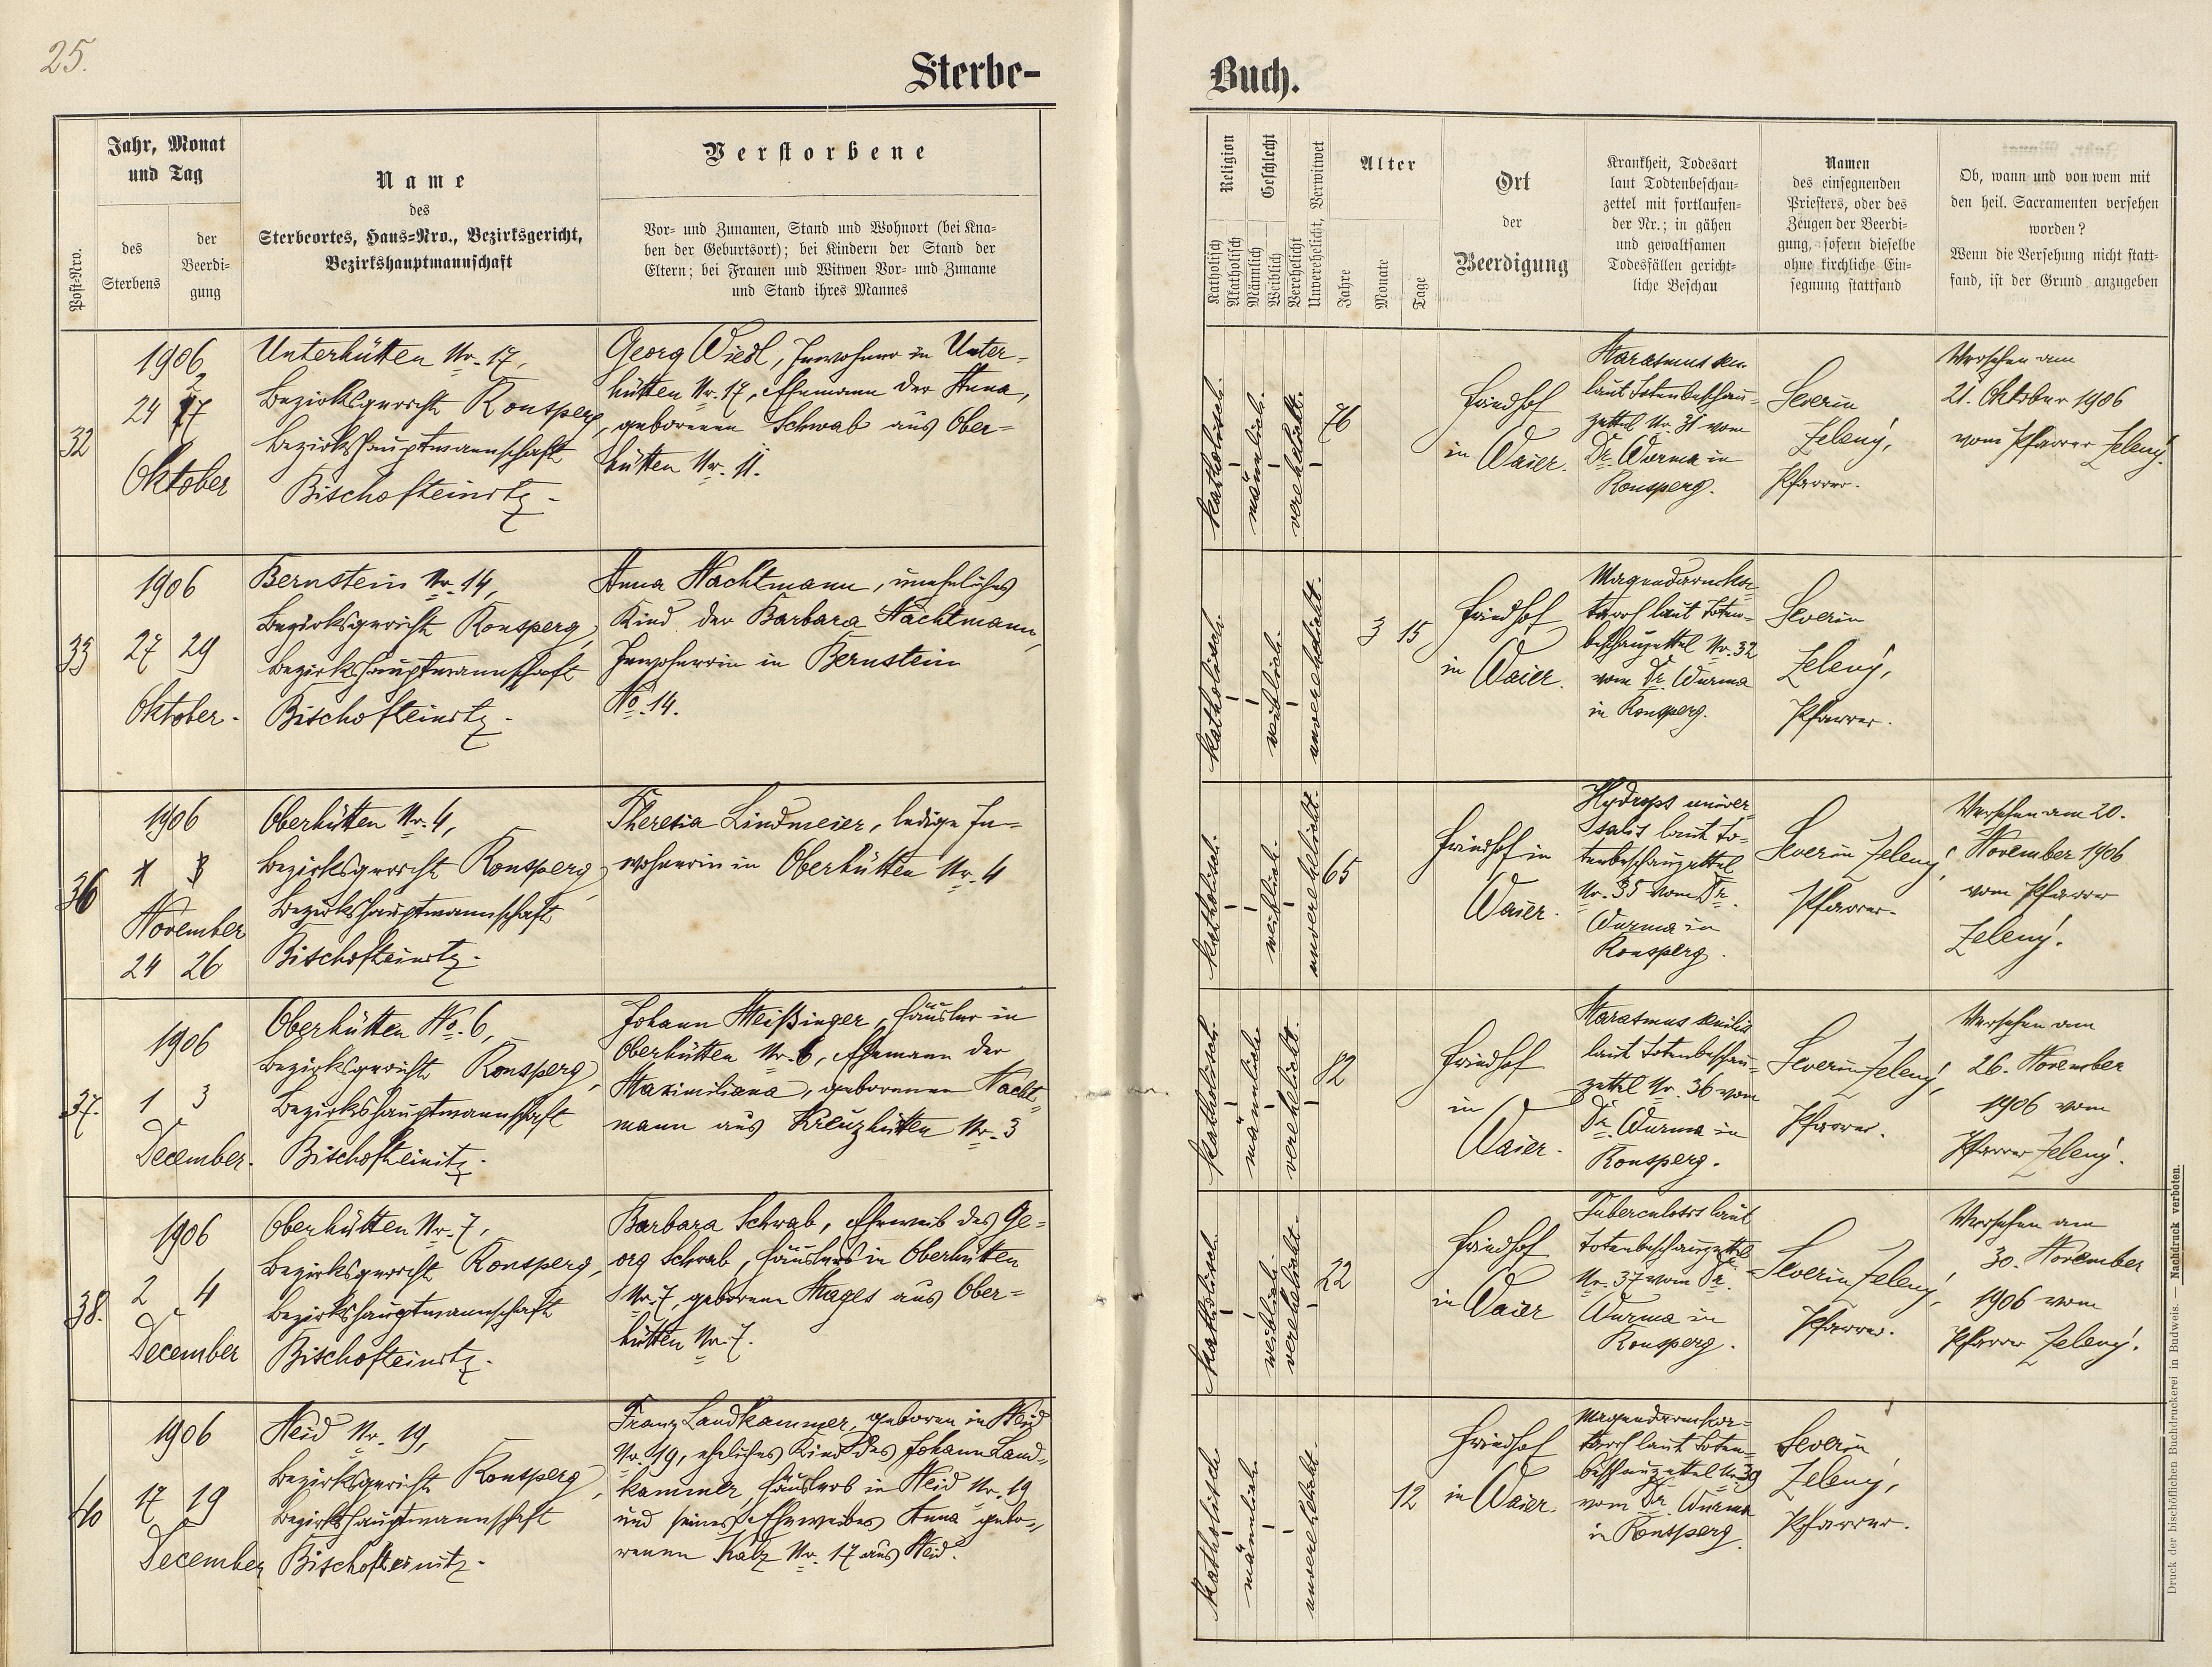 25.
Sterbe-
Buch.
Post-Nro.
Jahr, Monat
und Tag
des
Sterbens
der
Beerdi-
gung
Name
des
Sterbeortes, Haus-Nro., Bezirksgericht,
Bezirkshauptmannschaft
Verstorbene
Vor- und Zunamen, Stand und Wohnort (bei Kna-
ben der Geburtsort); bei Kindern der Stand der
Eltern; bei Frauen und Witwen Vor- und Zuname
und Stand ihres Mannes
Religion
Katholisch
Akatholisch
Geschlecht
Männlich
Weiblich
Verehelicht
Unverehelicht, Verwitwet
Alter
Jahre
Monate
Tage
Ort
der
Beerdigung
Krankheit, Todesart
laut Todtenbeschau-
zettel mit fortlaufen-
der Nr.; in gähen
und gewaltsamen
Todesfällen gericht-
liche Beschau
Namen
des einsegnenden
Priesters, oder des
Zeugen der Beerdi-
gung, sofern dieselbe
ohne kirchliche Ein-
segnung stattfand
Ob, wann und von wem mit
den heil. Sacramenten versehen
worden?
Wenn die Versehung nicht statt-
fand, ist der Grund anzugeben
32
1906
24 27
Oktober
Unterhütten Nr. 17,
Bezirksgericht Ronsperg,
Bezirkshauptmannschaft
Bischofteinitz.
Georg Wiedl, Inwohner in Unter-
hütten Nr. 17, Ehemann der Anna,
geborenen Schwab aus Ober-
hütten Nr. 11.
katholisch.
männlich.
verehelicht.
76
Friedhof
in Waier.
Marasmus sen.
laut Totenbeschau-
zettel Nr. 31 vom
Dr. Wurma in
Ronsperg.
Severin
Zelený,
Pfarrer.
Versehen am
21. Oktober 1906
vom Pfarrer Zelený.
33
1906
27 29
Oktober.
Bernstein Nr. 14,
Bezirksgericht Ronsperg,
Bezirkshauptmannschaft
Bischofteinitz.
Anna Nachtmann, uneheliches
Kind der Barbara Nachtmann,
Inwohnerin in Bernstein
No. 14.
katholisch.
weiblich.
unverehelicht.
3 15
Friedhof
in Waier.
Magendarmka-
tarrh laut Toten-
beschauzettel Nr. 32
vom Dr. Wurma
in Ronsperg.
Severin
Zelený,
Pfarrer.
36
1906
November
24 26
Oberhütten Nr. 4,
Bezirksgericht Ronsperg,
Bezirkshauptmannschaft
Bischofteinitz.
Theresia Lindmeier, ledige In-
wohnerin in Oberhütten Nr. 4
katholisch.
weiblich.
unverehelicht.
65
Friedhof in
Waier.
Hydrops univer-
salis laut To-
tenbeschauzettel
Nr. 35 vom Dr.
Wurma in
Ronsperg.
Severin Zelený,
Pfarrer.
Versehen am 20.
November 1906
vom Pfarrer
Zelený.
37.
1906
1 3
December.
Oberhütten No. 6,
Bezirksgericht Ronsperg,
Bezirkshauptmannschaft
Bischofteinitz.
Johann Meißinger, Häusler in
Oberhütten Nr. 6, Ehemann der
Maximiliana, geborenen Nacht-
mann aus Kreuzhütten Nr. 3
katholisch.
männlich.
verehelicht.
82
Friedhof
in
Waier.
Marasmus senilis
laut Totenbeschau-
zettel Nr. 36 vom
Dr. Wurma in
Ronsperg.
Severin Zelený,
Pfarrer.
Versehen am
26. November
1906 vom
Pfarrer Zelený.
38.
1906
2 4
December
Oberhütten Nr. 7,
Bezirksgericht Ronsperg,
Bezirkshauptmannschaft
Bischofteinitz.
Barbara Schwab, Eheweib des Ge-
org Schwab, Häuslers in Oberhütten
Nr. 7, geborene Mages aus Ober-
hütten Nr. 7.
katholisch
weiblich.
verehelicht.
22
Friedhof
in Waier
Tuberculosis laut
Totenbeschauzettel
Nr. 37 vom Dr.
Wurma in
Ronsperg.
Severin Zelený,
Pfarrer.
Versehen am
30. November
1906 vom
Pfarrer Zelený.
40
1906
17 19
December
Heid Nr. 19,
Bezirksgericht Ronsperg,
Bezirkshauptmannschaft
Bischofteinitz.
Franz Landkammer, geboren in Heid
Nr. 19, eheliches Kind des Johann Land-
kammer, Häuslers in Heid Nr. 19
und seines Eheweibes Anna gebo-
renen Kalz Nr. 17 aus Heid.
katholisch
männlich.
unverehelicht.
12
Friedhof
in Waier.
Magendarmka-
tarrh laut Toten-
beschauzettel Nr. 39
vom Dr. Wurma
in Ronsperg.
Severin
Zelený,
Pfarrer.
Druck der bischöflichen Buchdruckerei in Budweis. — Nachdruck verboten.